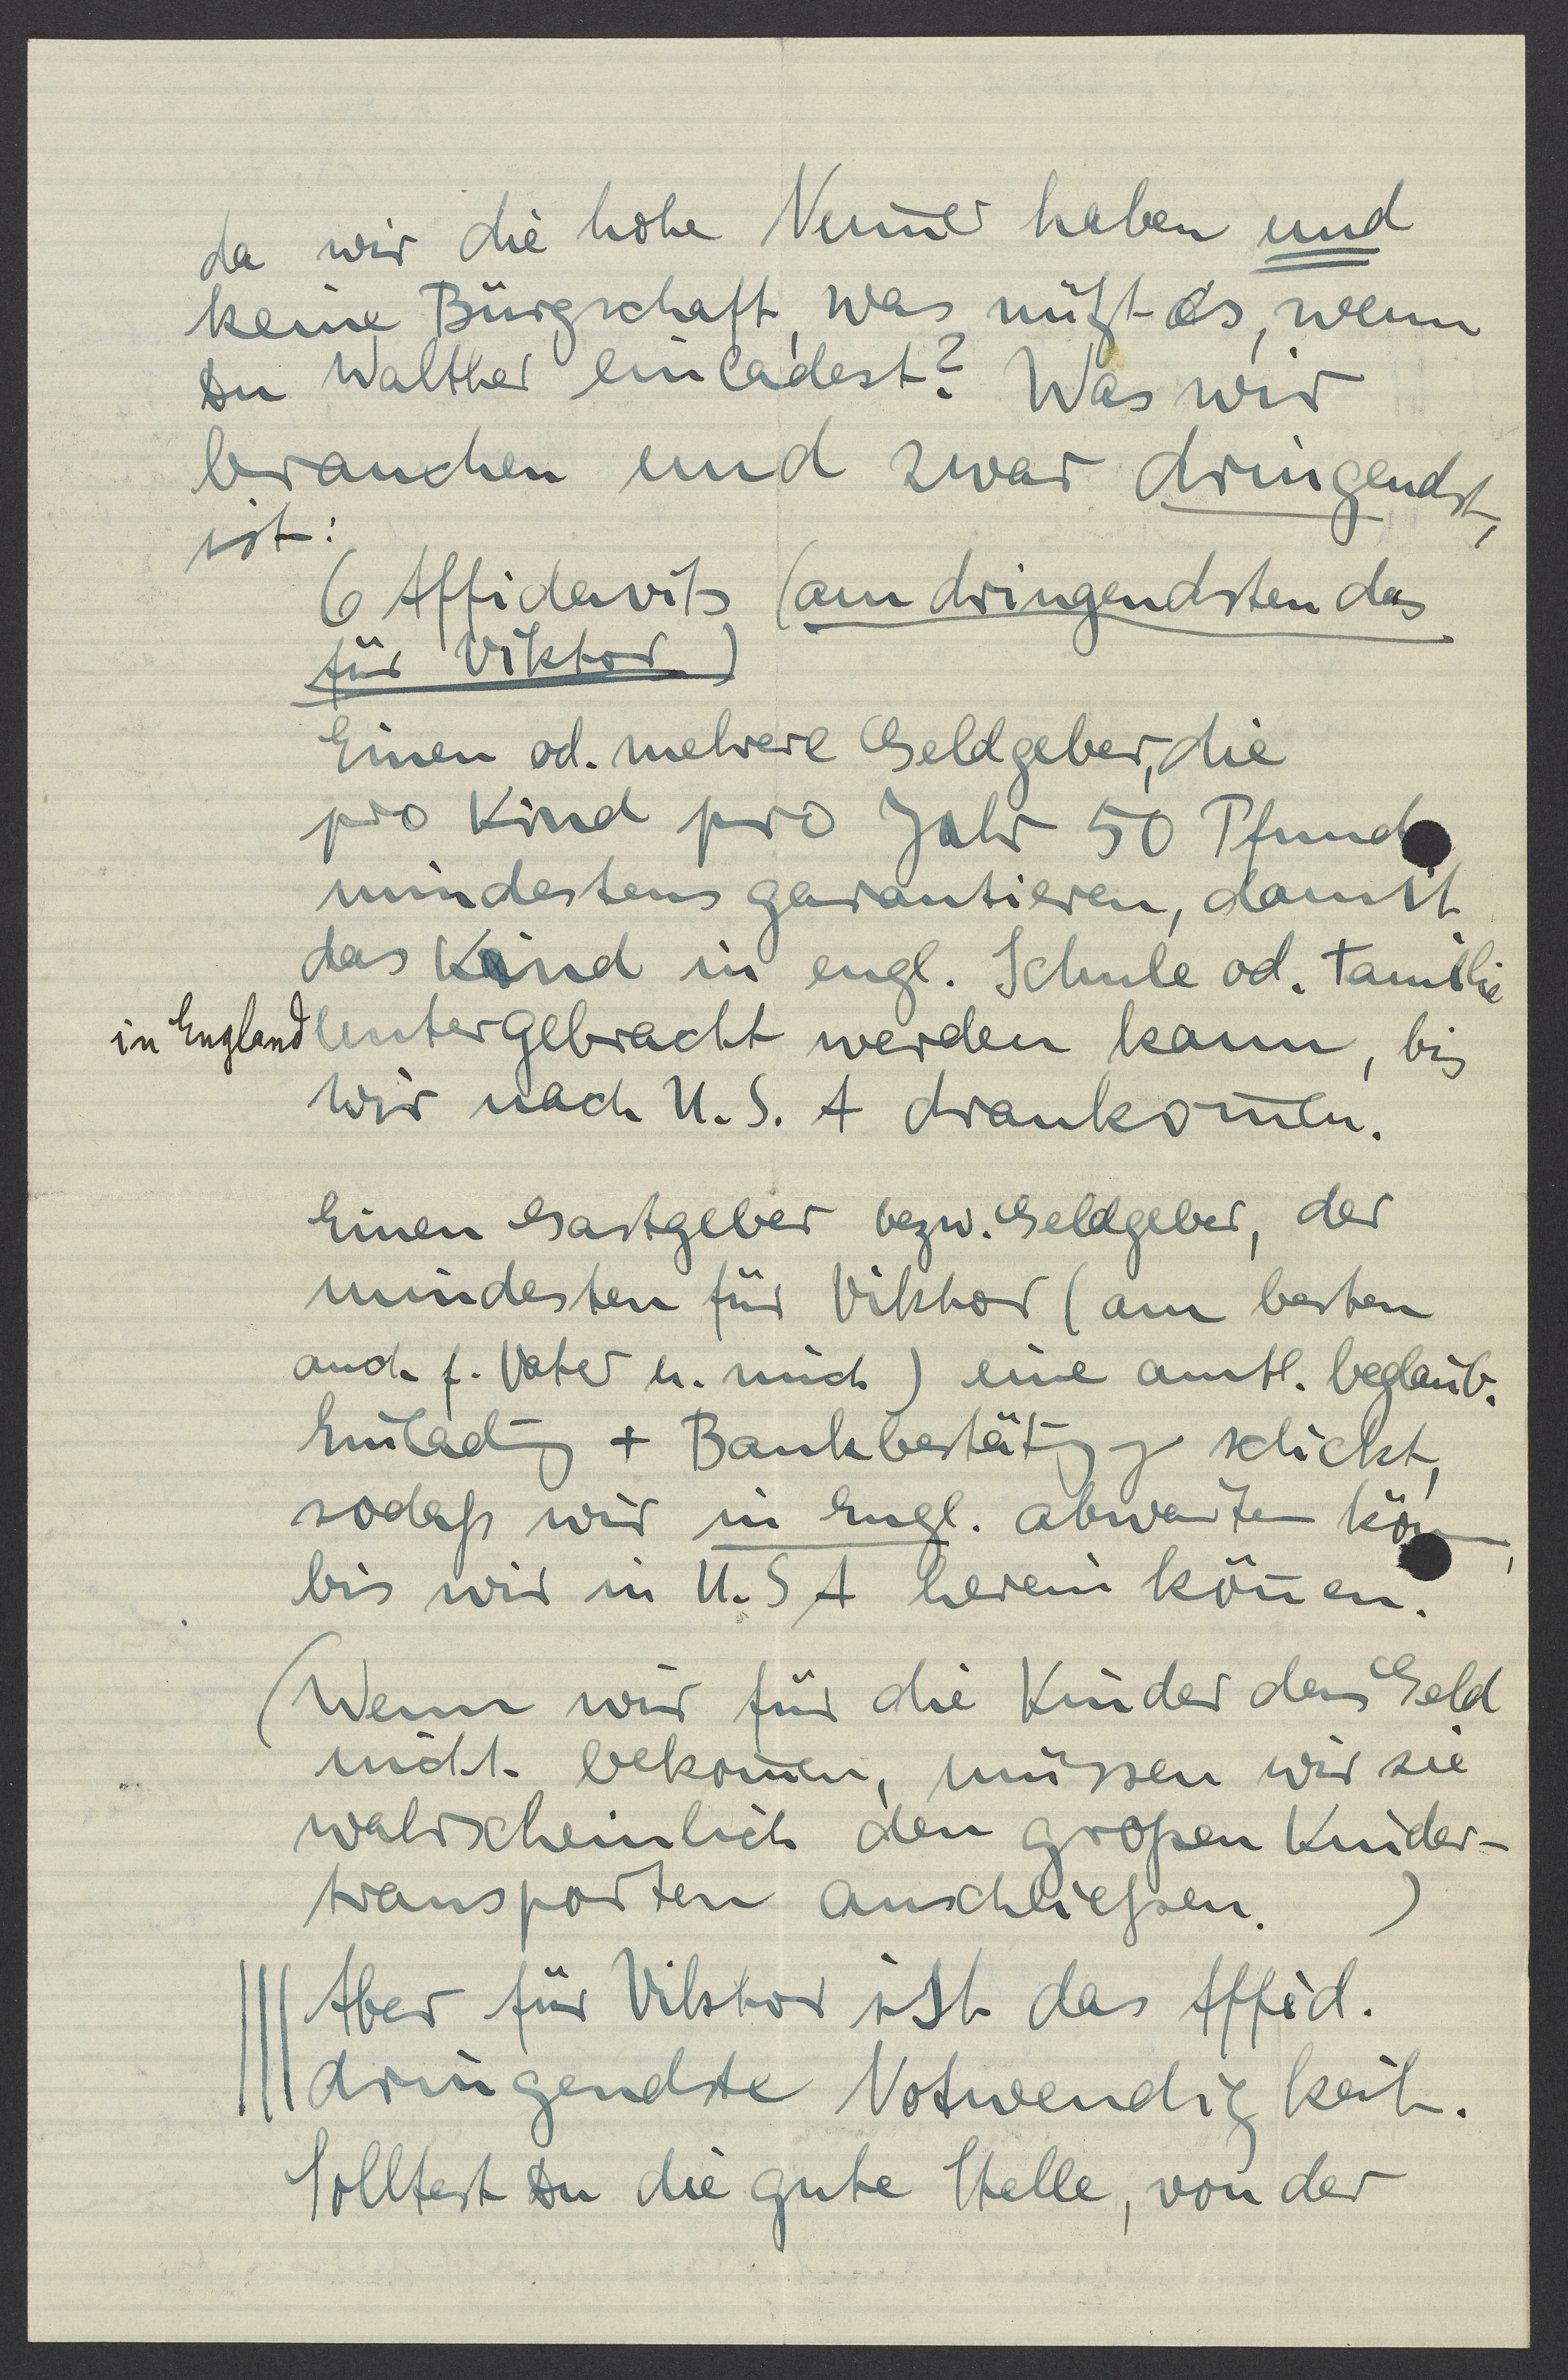 da wir die hohe Num̄er haben und
keine Bürgschaft, was nützt es, wenn
Du Walther einladest? Was wir
brauchen und zwar dringendst,
ist:
6 Affidavits (am dringendsten das
für Viktor)
Einen od. mehrere Geldgeber, die
pro Kind pro Jahr 50 Pfund
mindestens garantieren, damit
das Kind in engl. Schule od. Familie
in England untergebracht werden kann, bis
wir nach U.S.A drankom̄en.
Einen Gastgeber bezw. Geldgeber, der
mindesten für Viktor (am besten
auch f. Vater u. mich) eine amtl. beglaub.
Einladg + Bankbestätigg schickt,
sodaß wir in Engl. abwarten kön,
bis wir in U.S A herein kön̄en.
(Wenn wir für die Kinder das Geld
nicht bekom̄en, müssen wir sie
wahrscheinlich den großen Kinder-
transporten anschließen. )
Aber für Viktor ist das Affid.
dringendste Notwendigkeit.
Solltest Du die gute Stelle, von der